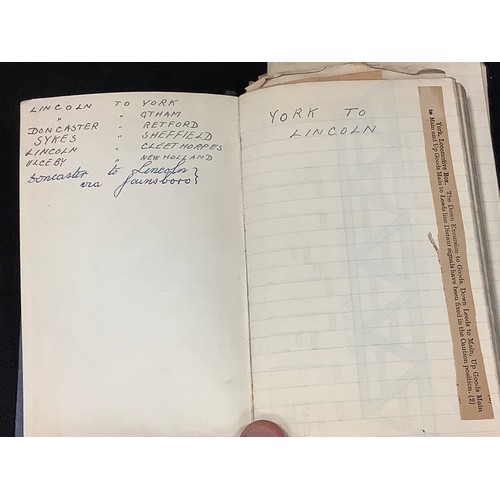 LINCOLN TO YORK
" " GTHAM
DONCASTER " RETFORD
SYKES " SHEFFIELD
LINCOLN " CLEETHORPES
ULCEBY " NEW HOLLAND
Doncaster to Lincoln }
via Gainsboro }
YORK TO
LINCOLN
York, Locomotive Box. The Down Excursion to Goods, Down Leeds to Main, Up Goods Main
to Main and Up Goods Main to Leeds line Distant signals have been fixed in the Caution position. (2)